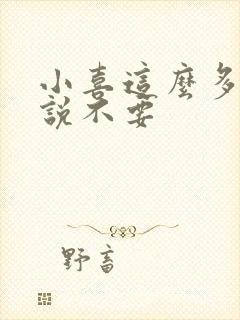 小喜這麼多
說不要
野畜